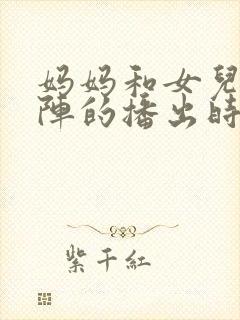 妈妈和女兒
陣的播出時
紫千紅